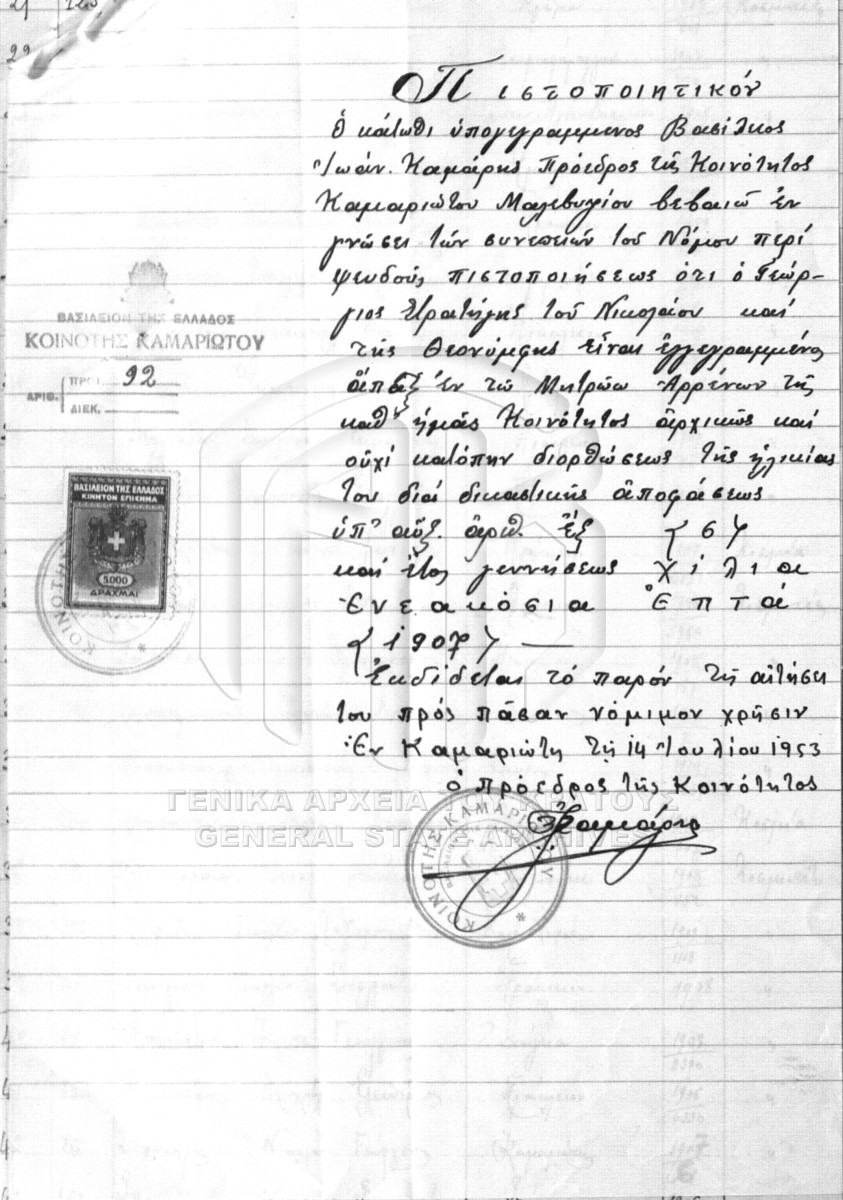 Πιστοποιητικόν
Ὁ κάτωθι ὑπογεγραμμενος Βασίλειος
Ἰωάν. Καμάρης Πρόεδρος τῆς Κοινότητος
Καμαριώτου Μαλεβυζίου βεβαιῶ ἐν
γνώσει τῶν συνεπειῶν τοῦ Νόμου περί
ψευδοῦς πιστοποιήσεως ὅτι ὁ Γεώρ-
γιος Στρατήγης τοῦ Νικολάου καί
τῆς Θεονύμφης εἶναι ἐγγεγραμμένος
ἅπαξ ἐν τῶ Μητρώω Ἀρρένων τῆς
καθ' ἡμᾶς Κοινότητος ἀρχικῶς καί
οὐχί κατόπην διορθώσεως τῆς ἡλικίας
του διά δικαστικῆς ἀποφάσεως
ὑπ' αὔξ. ἀριθ. ἕξ {6}
καί ἔτος γεννήσεως χίλια
ἐνεακόσια ἑπτά
{1907} —
Ἐκδίδεται τό παρόν τῇ αἰτήσει
του πρός πᾶσαν νόμιμον χρῆσιν
Ἐν Καμαριώτη τῇ 14 Ἰουλίου 1953
ὁ Πρόεδρος τῆς Κοινότητος
Καμάρης
ΒΑΣΙΛΕΙΟΝ ΤΗΣ ΕΛΛΑΔΟΣ
ΚΟΙΝΟΤΗΣ ΚΑΜΑΡΙΩΤΟΥ
ΑΡΙΘ. ΠΡΩΤ. 92
ΔΙΕΚ.
ΒΑΣΙΛΕΙΟΝ ΤΗΣ ΕΛΛΑΔΟΣ
ΚΙΝΗΤΟΝ ΕΠΙΣΗΜΑ
5.000
ΔΡΑΧΜΑΙ
ΚΟΙΝΟΤΗΣ
ΚΟΙΝΟΤΗΣ ΚΑΜΑΡΙΩΤΟΥ
ΓΕΝΙΚΑ ΑΡΧΕΙΑ ΤΟΥ ΚΡΑΤΟΥΣ
GENERAL STATE ARCHIVES